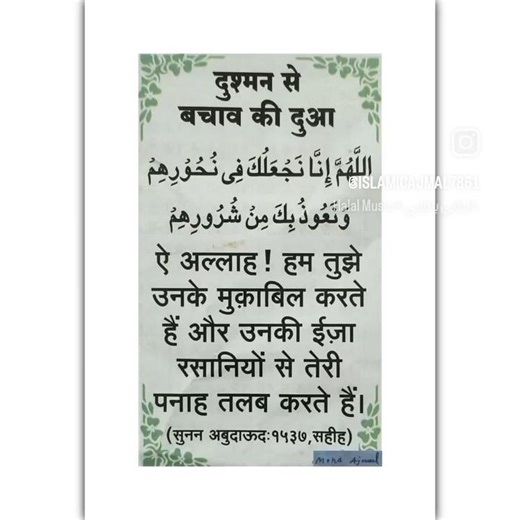 दुश्मन से
बचाव की दुआ
اَللَّهُمَّ إِنَّا نَجْعَلُكَ فِي نُحُوْرِهِمْ
وَنَعُوْذُ بِكَ مِنْ شُرُوْرِهِمْ
@ISLAMICAJMAL7861
Halal Mus
ऐ अल्लाह! हम तुझे
उनके मुक़ाबिल करते
हैं और उनकी ईज़ा
रसानियों से तेरी
पनाह तलब करते हैं।
(सुनन अबुदाऊदः१५३७,सहीह)
Mohd Ajmal